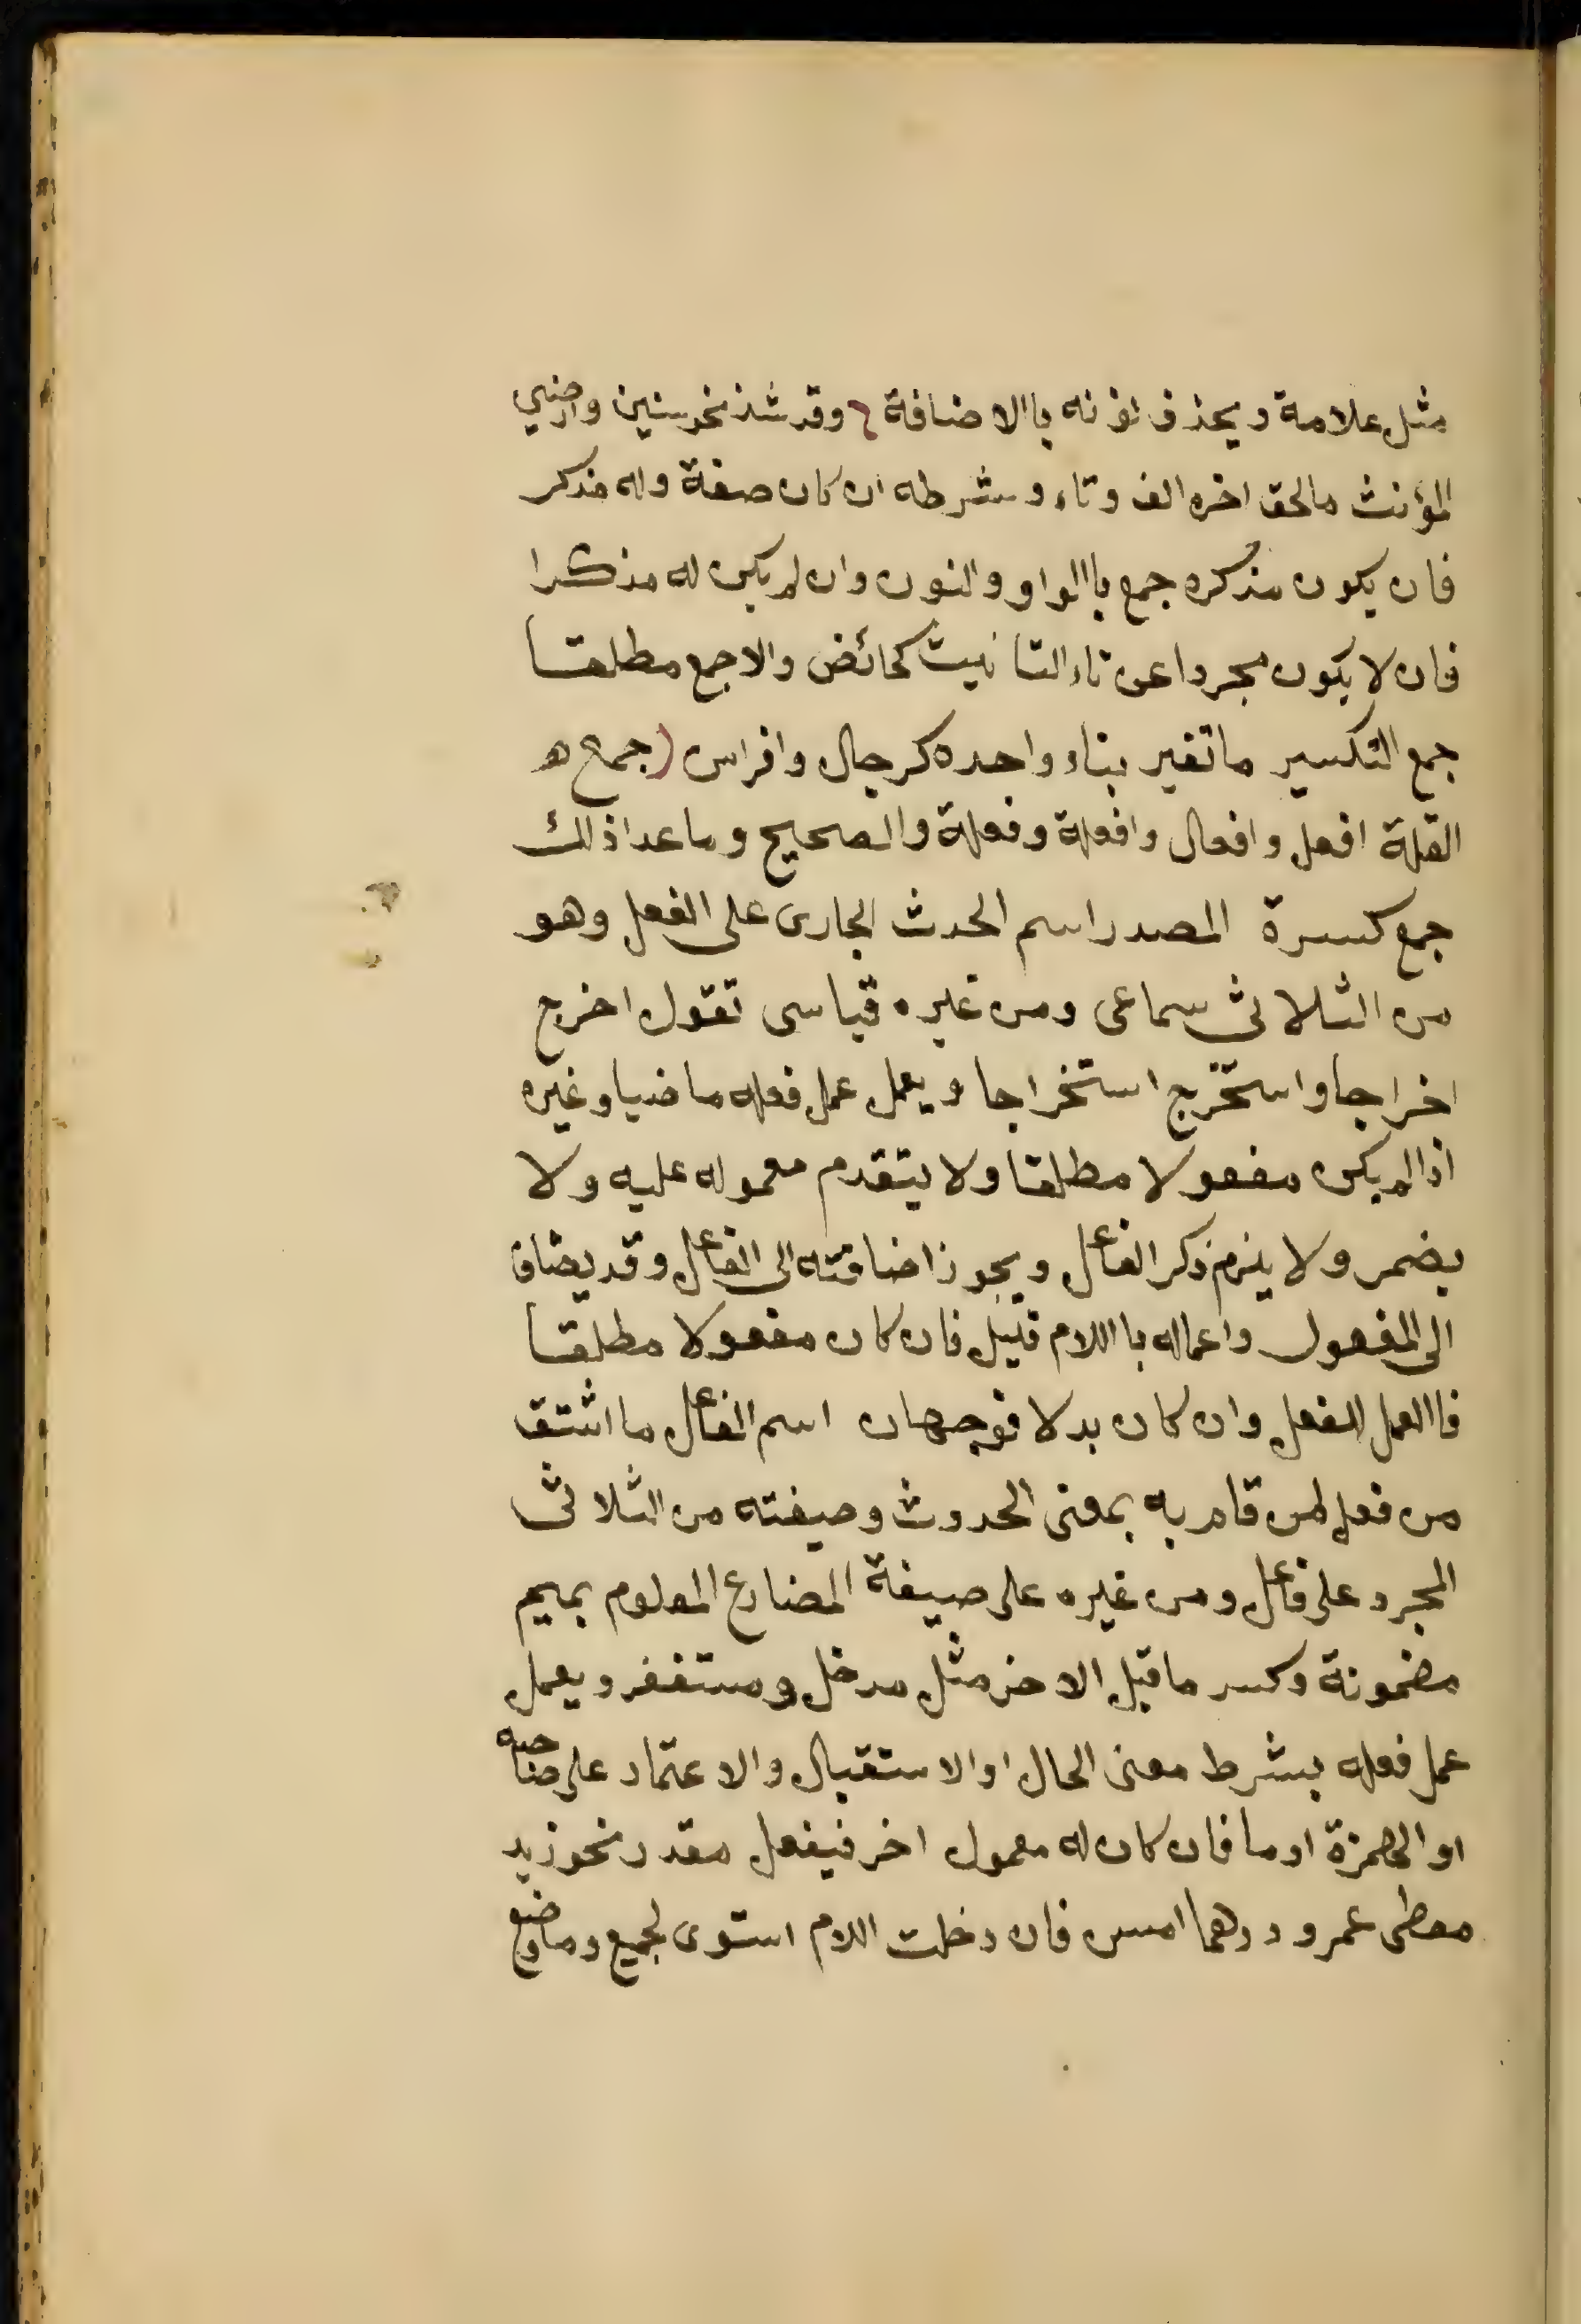 مثل علامة ويحذف نونه باالاضافة وقد شذ نحو سنين وارضين
المؤنث مالحق اخره الف وتاء وشرطه ان كان صفة وله مذكر
فان يكون مذكره جمع باالواو والنون وان لم يكن له مذكرا
فان لا يكون مجردا عن تاء التانيث كحائض والاجمع مطلقا
جمع التكسير ماتغير بناء واحده كرجال وافراس (جمع ه
القلة افعل وافعال وافعلة وفعلة والصحيح وماعدا ذلك
جمع كسرة المصدر اسم الحدث الجارى على الفعل وهو
من الثلاثى سماعى ومن غيره قياسى تقول اخرج
اخراجا واستخرج استخراجا ويعمل عمل فعله ماضيا وغيره
اذا لم يكن مفعولا مطلقا ولا يتقدم معموله عليه ولا
يضمر ولا يلزم ذكر الفاعل ويجوز اضافته الى الفاعل وقد يضاف
الى المفعول واعماله بااللام قليل فان كان مفعولا مطلقا
فاالعمل للفعل وان كان بدلا فوجهان اسم الفاعل ما اشتق
من فعل لمن قام به بمعنى الحدوث وصيغته من الثلاثى
المجرد على فاعل ومن غيره على صيغة المضارع المعلوم بميم
مضمونة وكسر ماقبل الاخر مثل مدخل ومستغفر ويعمل
عمل فعله بشرط معنى الحال او الاستقبال والاعتماد على صاحبه
او الهمزة اوما فان كان له معمول اخر فيفعل مقدر نحو زيد
معطى عمرو درهما امس فان دخلت اللام استوى لجميع وماوضع